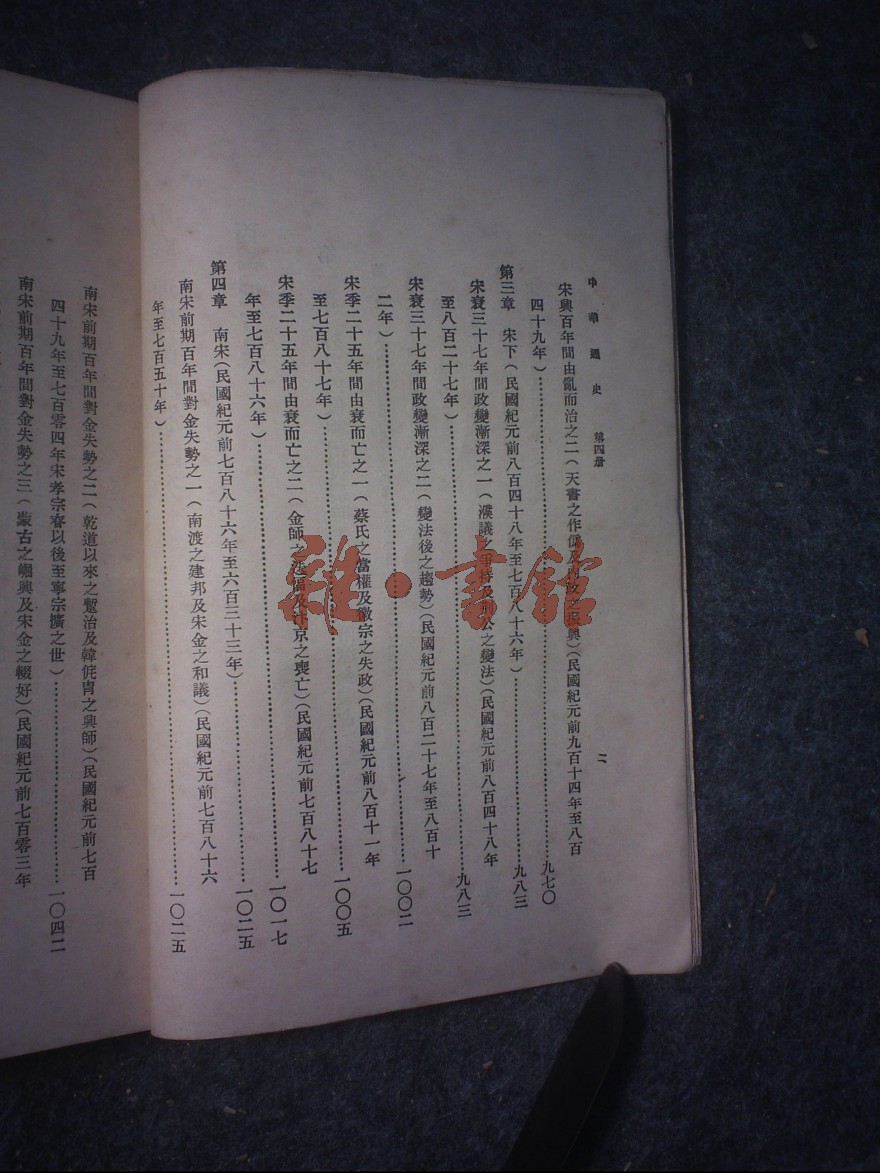 中華通史　第四册　二
宋興百年間由亂而治之二(天書之作僞及 政之振興)(民國紀元前九百十四年至八百
四十九年)……九七〇
第三章　宋下(民國紀元前八百四十八年至七百八十六年)……九八三
宋衰三十七年間政變漸深之一(濮議之爭持及荊公之變法)(民國紀元前八百四十八年
至八百二十七年)……九八三
宋衰三十七年間政變漸深之二(變法後之趨勢)(民國紀元前八百二十七年至八百十
二年)……一〇〇二
宋季二十五年間由衰而亡之一(蔡氏之當權及徽宗之失政)(民國紀元前八百十一年
至七百八十七年)……一〇〇五
宋季二十五年間由衰而亡之二(金師之 及汴京之喪亡)(民國紀元前七百八十七
年至七百八十六年)……一〇一七
第四章　南宋(民國紀元前七百八十六年至六百三十三年)……一〇二五
南宋前期百年間對金失勢之一(南渡之建邦及宋金之和議)(民國紀元前七百八十六
年至七百五十年)……一〇二五
南宋前期百年間對金失勢之二(乾道以來之蹔治及韓侂胄之興師)(民國紀元前七百
四十九年至七百零四年宋孝宗眘以後至寧宗擴之世)……一〇四二
南宋前期百年間對金失勢之三(蒙古之崛興及宋金之輟好)(民國紀元前七百零三年
雜·書館